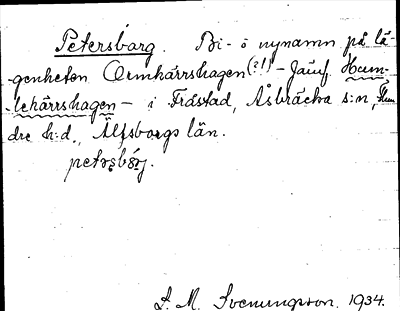 Petersbarg. Bi- o nynamn på lä-
genheten Ormkärrshagen (?!) - Jämf. Hum-
lekärrshagen - i Frästad, Åsbräcka s:n, Flun
dre h:d., Älfsborgs län.
petəʂbárj.
S. M. Svenungson. 1934.